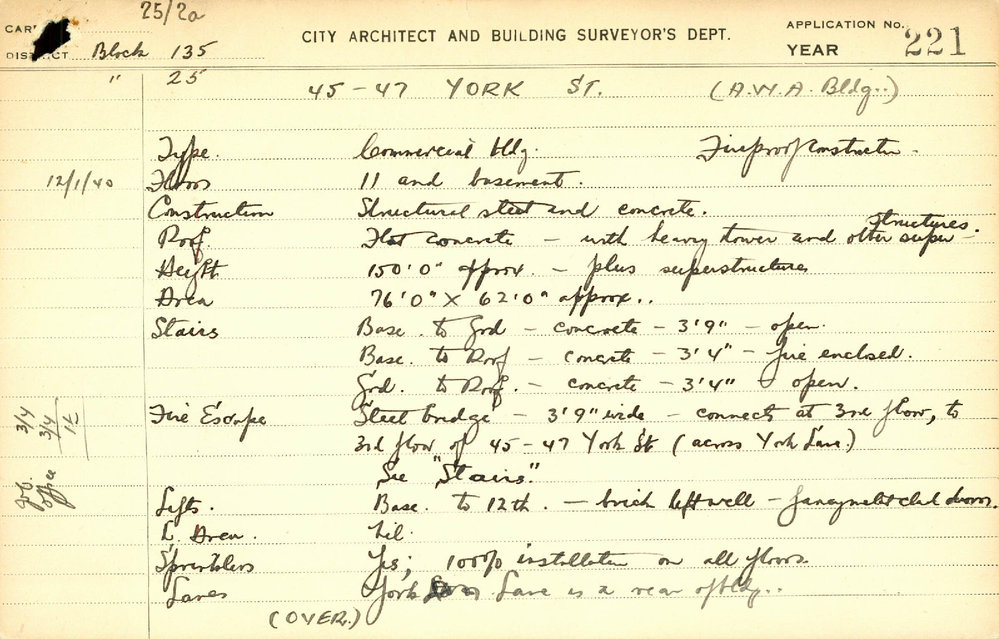 25/2a
CAR
DISTRICT Block 135
CITY ARCHITECT AND BUILDING SURVEYOR'S DEPT.
APPLICATION No. 221
YEAR
" 25
45-47 YORK ST. (A.W.A. Bldg.)
Type. Commercial bldg. Fireproof construction.
12/1/40 Floors 11 and basement.
Construction Structural steel and concrete.
Roof Flat concrete - with heavy tower and other super-structures.
Height 150'0" approx. - plus superstructures
Area 76'0" x 62'0" approx..
Stairs Base. to Grd - concrete - 3'9" - open.
Base. to Roof - concrete - 3'4" - fire enclosed.
Grd. to Roof. - concrete - 3'4" - open.
Fire Escape "Steel bridge" - 3'9" wide - connects at 3rd floor, to
3rd floor of 45-47 York St (across York Lane.)
See "Stairs."
Lifts. Base. to 12th. - brick lift well - doors.
L. Area. Nil.
Sprinklers Yes; 100% installation on all floors.
Lanes York Lane is a rear of bldg..
(OVER.)
3/4
3/4
office